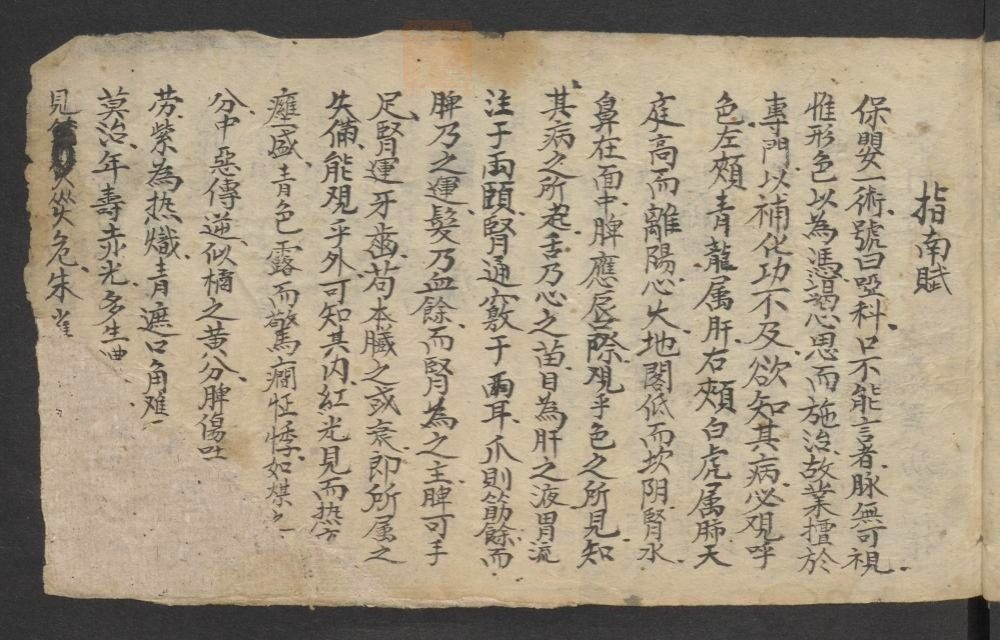 指南賦
保嬰一術號曰啞科口不能言者脉無可視
惟形色以為憑竭心思而施治故業擅於
專門以補化功不及欲知其病必观呼
色左頰青龍属肝右頰白虎属肺天
庭高而離陽心火地閣低而坎阴腎水
鼻在面中脾應唇際观乎色之所見知
其病之所起舌乃心之苗目為肝之液胃流
注于両頤腎通竅于両耳爪則筋餘而
脾乃之運髮乃血餘而腎為之主脾可手
足腎運牙齒苟本臟之或衰即所属之
失偹能观乎外可知其内紅光見而热
癰盛青色露而驚癇怔悸如煤之
分中惡傳逆似橘之黄分脾傷吐
劳紫為热熾青遮口角难
莫治年壽赤光多生
見危朱雀